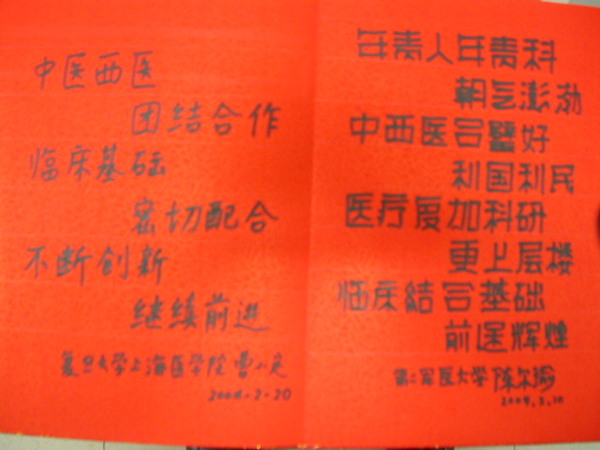 中医西医
团结合作
临床基础
密切配合
不断创新
继续前进
复旦大学上海医学院 曹小定
2004.2.20
年青人年青科
朝气澎渤
中西医合璧好
利国利民
医疗复加科研
更上层楼
临床結合基础
前途辉煌
第二军医大学 陈尔瑜
2004.2.20